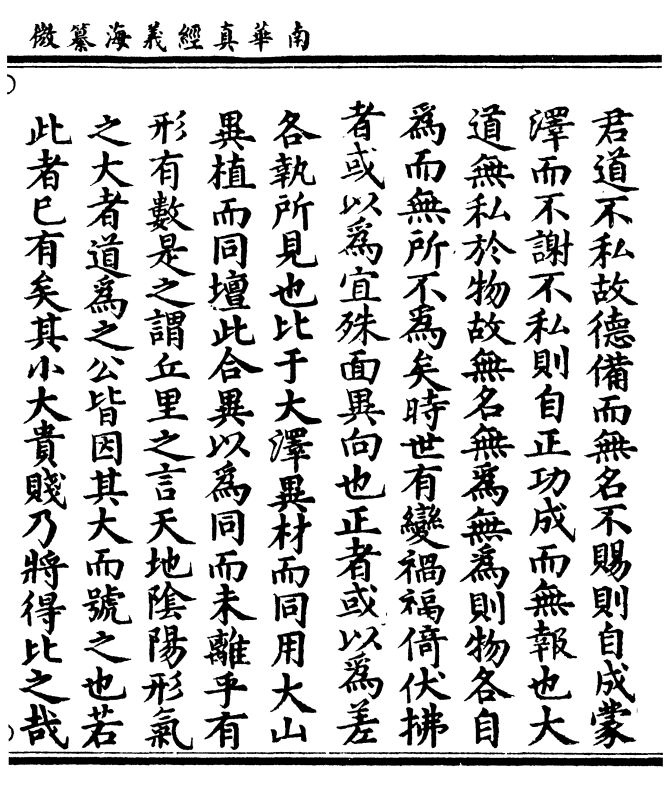 南華真經義海纂微
君道不私故德備而無名不賜則自成蒙
澤而不謝不私則自正功成而無報也大
道無私於物故無名無爲無爲則物各自
爲而無所不爲矣時世有變禍福倚伏拂
者或以爲宜殊面異向也正者或以爲差
各執所見也比于大澤異材而同用大山
異植而同壇此合異以爲同而未離乎有
形有數是之謂丘里之言天地陰陽形氣
之大者道爲之公皆因其大而號之也若
此者已有矣其小大貴賤乃將得比之哉